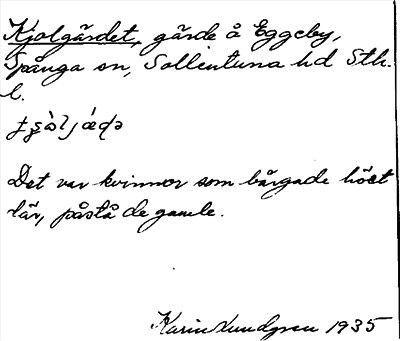 Kjolgärdet, gärde å Eggeby,
Spånga sn, Sollentuna hd Sth.
l.
Det var kvinnor som bärgade höet
där, påstå de gamle.
Karin Lundgren 1935